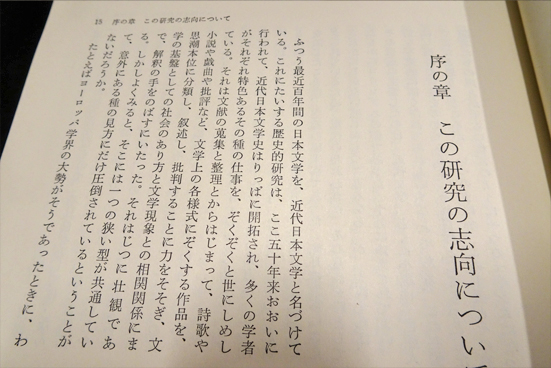 序の章　この研究の志向につい
ふつう最近百年間の日本文学を、近代日本文学と名づけて
いる。これにたいする歴史的研究は、ここ五十年来おおいに
行われて、近代日本文学史はりっぱに開拓され、多くの学者
がそれぞれ特色あるその種の仕事を、ぞくぞくと世にしめし
ている。それは文献の蒐集と整理とからはじまって、詩歌や
小説や戯曲や批評など、文学上の各様式にぞくする作品を、
思潮本位に分類し、叙述し、批判することに力をそそぎ、文
学の基盤としての社会のあり方と文学現象との相関関係にま
で、解釈の手をのばすにいたった。それはじつに壮観であ
る。しかしよくみると、そこには一つの狭い型が共通してい
て、意外にある種の見方にだけ圧倒されているということが
ないだろうか。
たとえばヨーロッパ学界の大勢がそうであったときに、わ
15 序の章　この研究の志向について